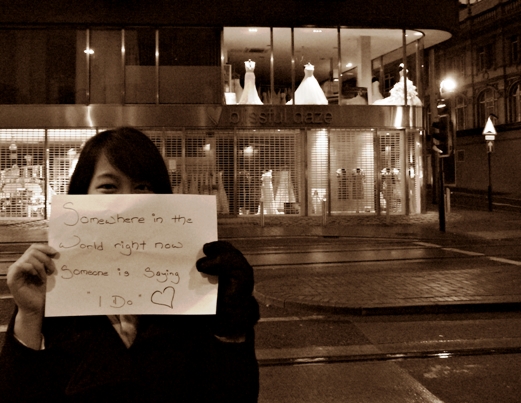 blissful daze
Somewhere in the
World right now
Someone is Saying
"I Do"